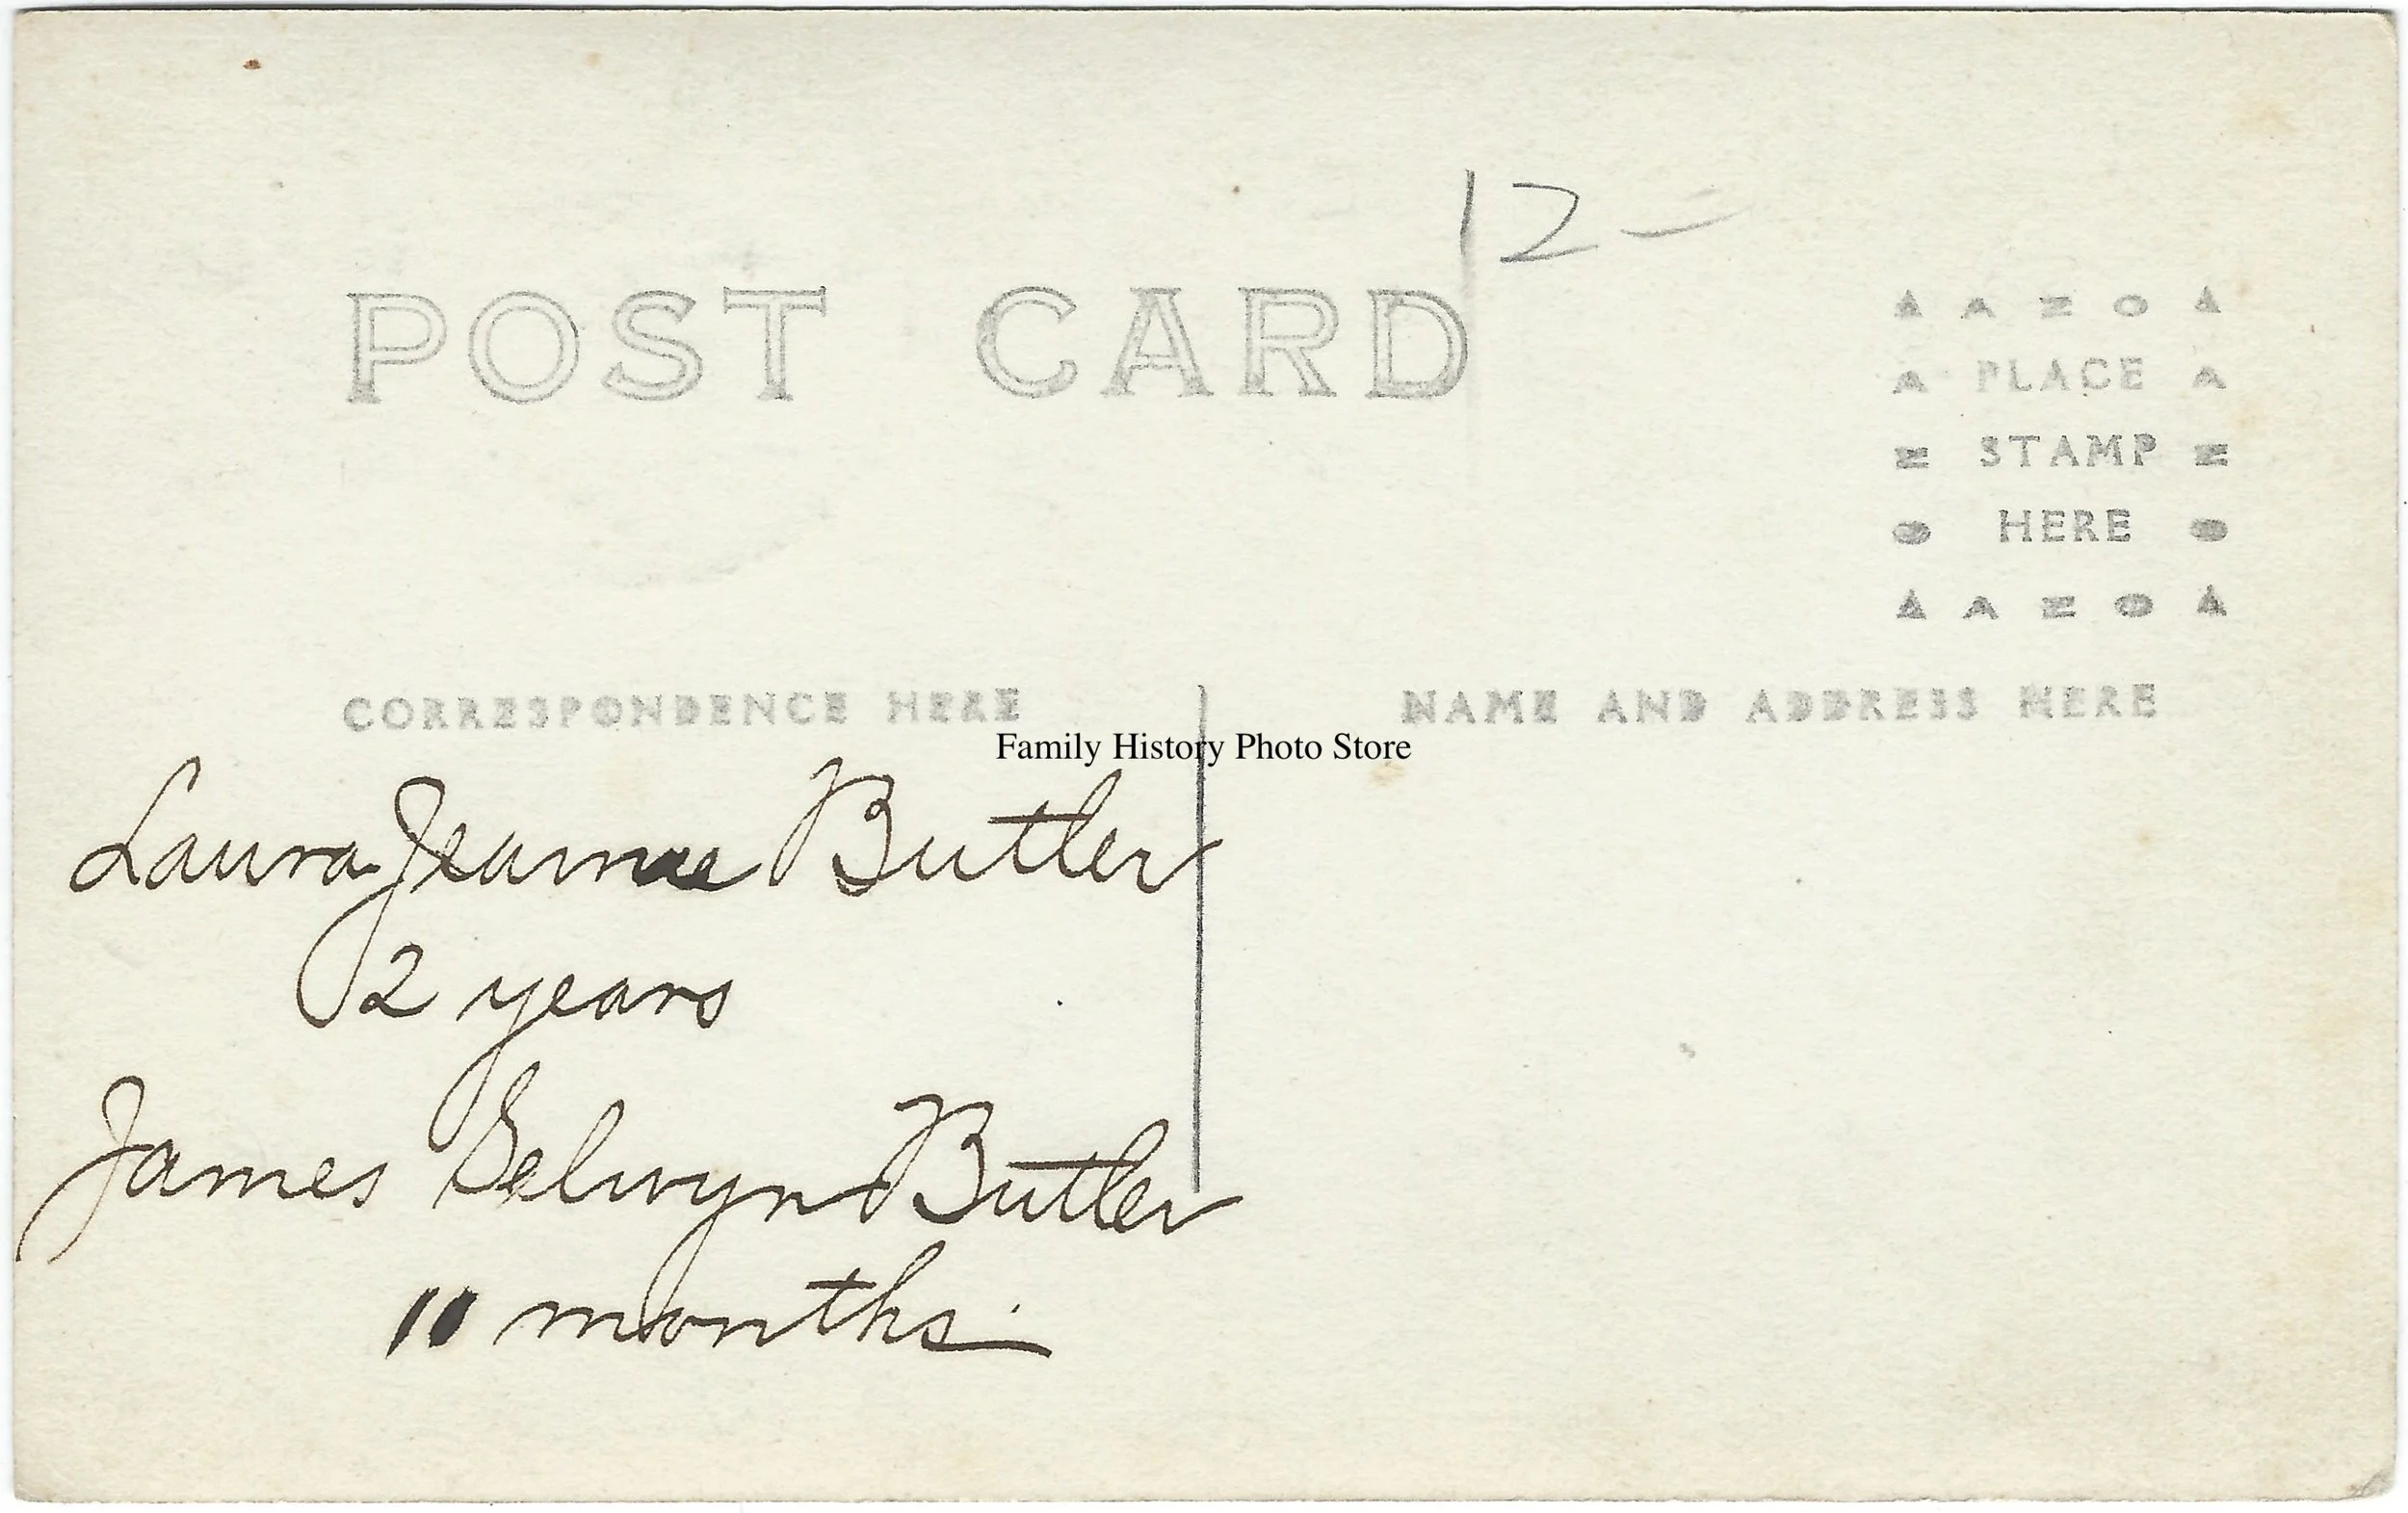 12-
POST CARD
A Z O
PLACE
STAMP
HERE
A Z O
CORRESPONDENCE HERE
NAME AND ADDRESS HERE
Family History Photo Store
Laura Jeanne Butler
2 years
James Selwyn Butler
10 months